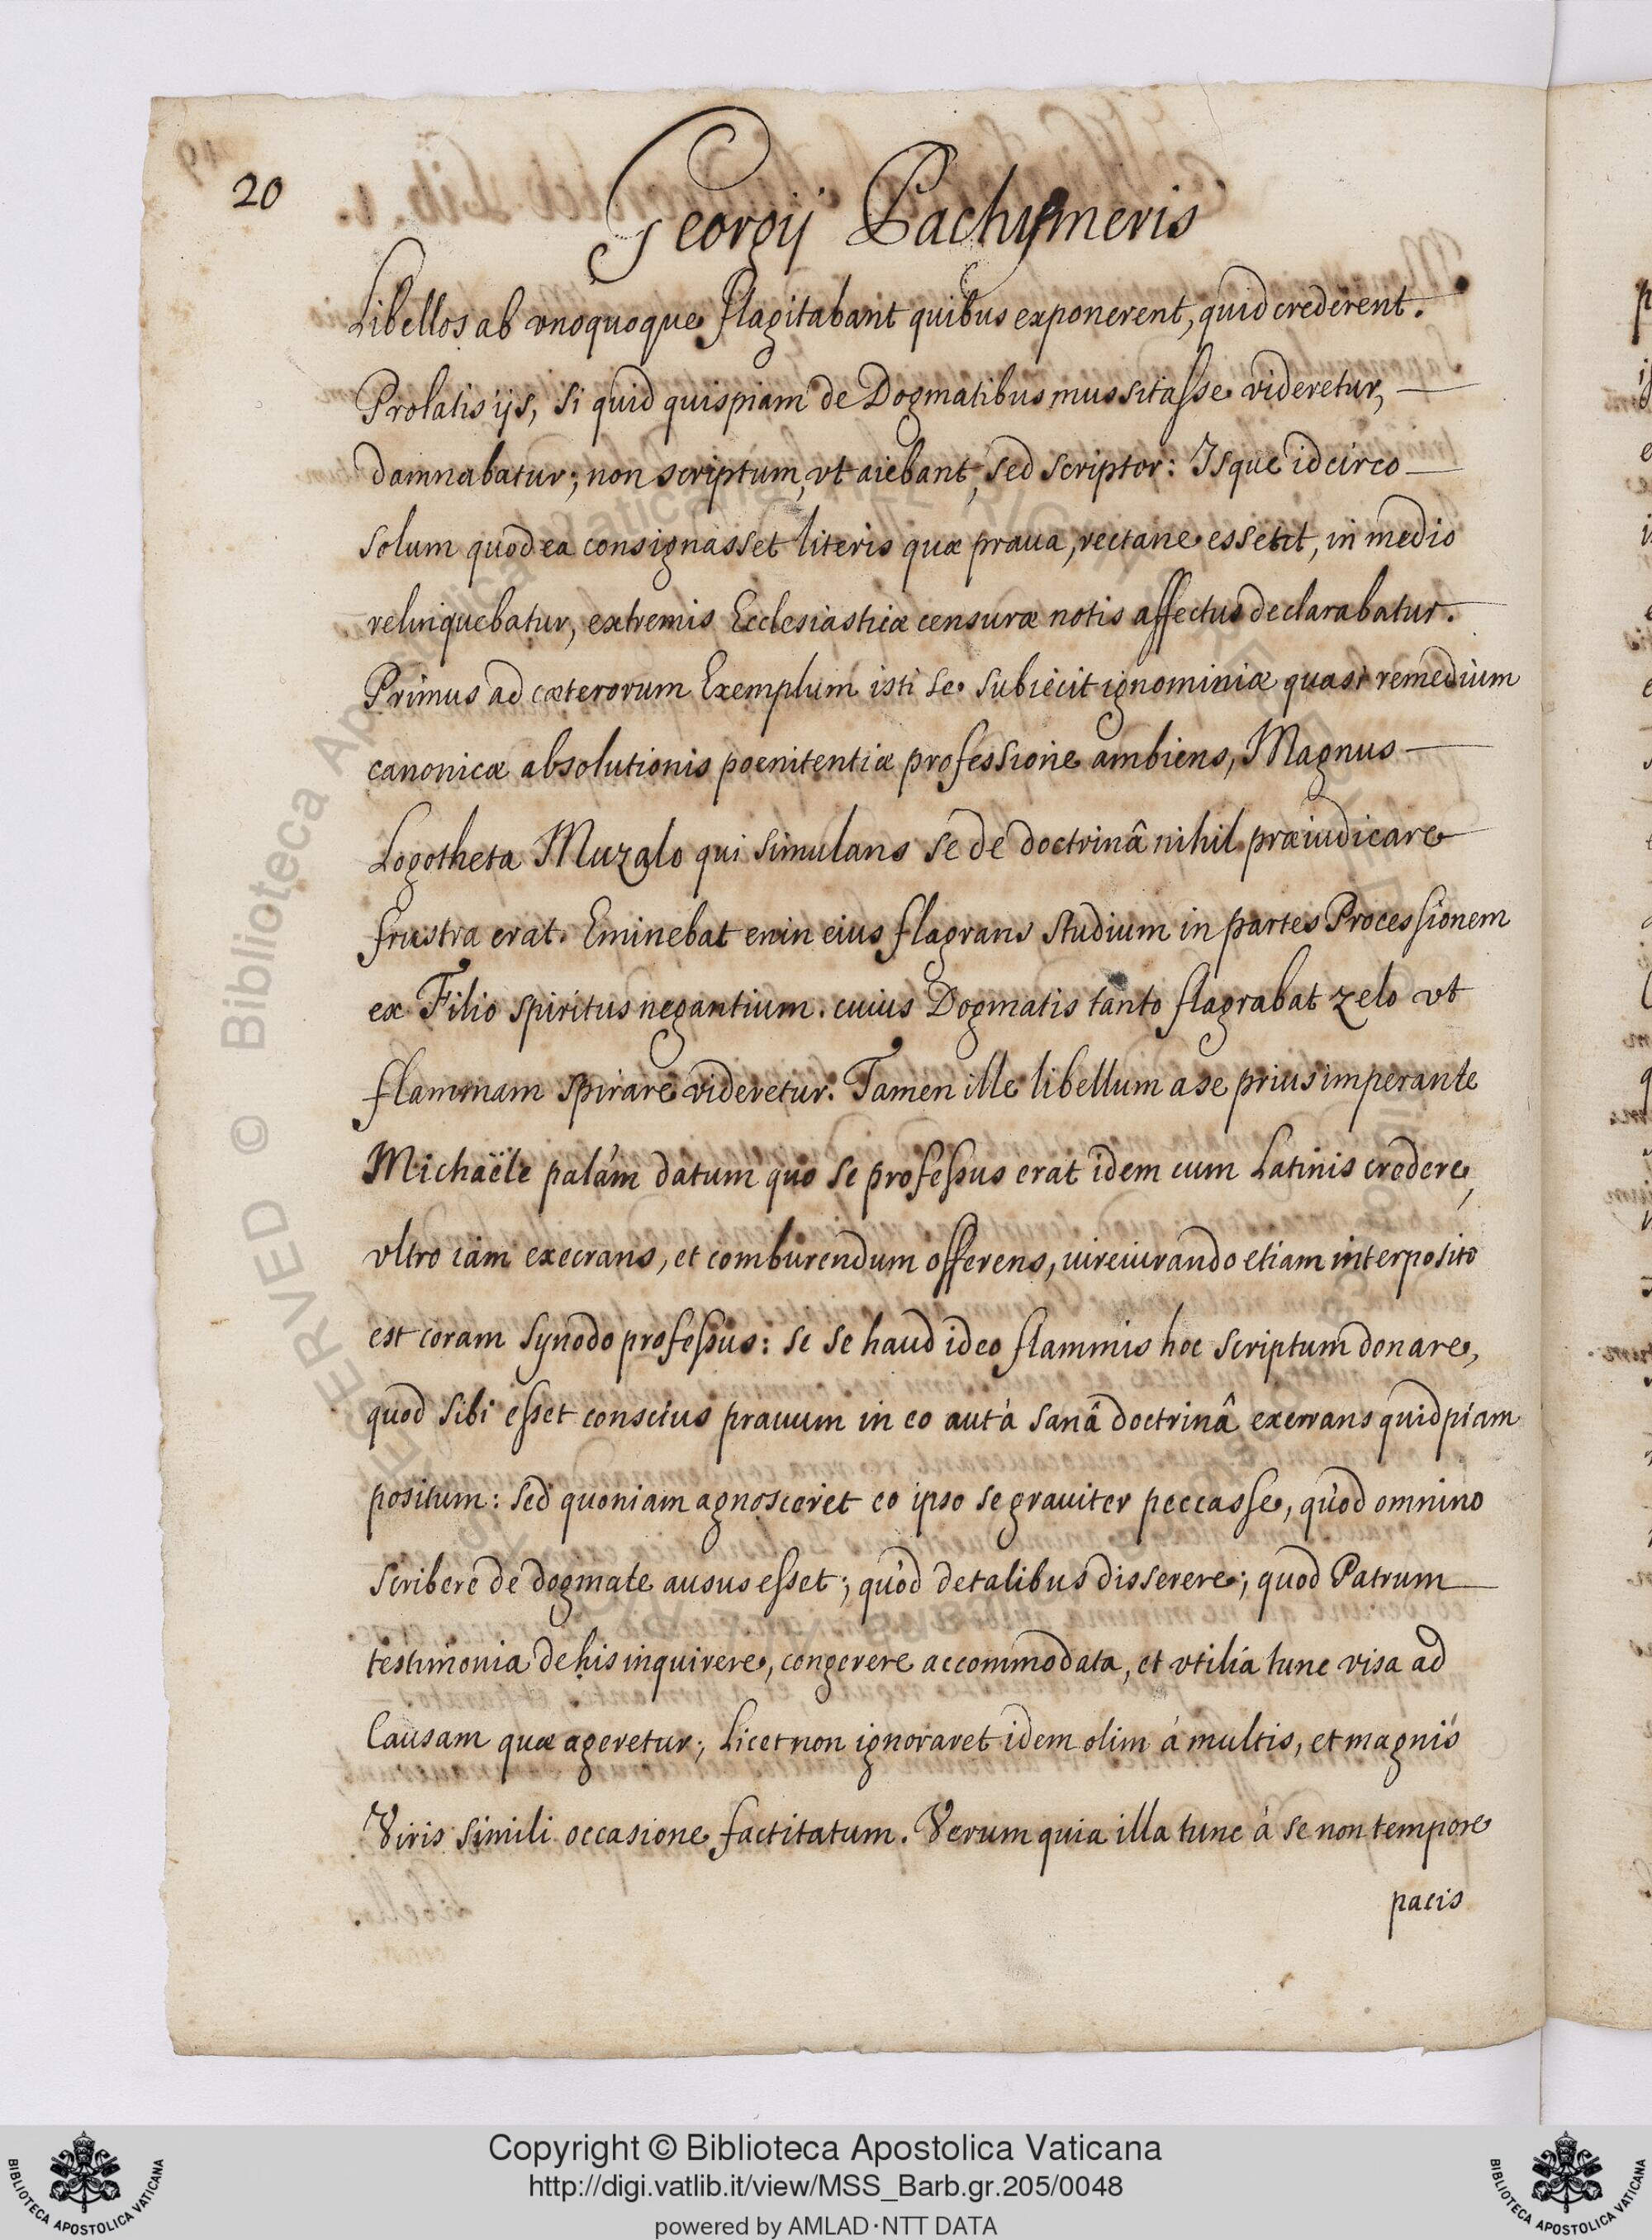 20
Georgij Pachymeris
Libellos ab vnoquoque flagitabant quibus exponerent, quid crederent.
Prolatis ijs, si quid quispiam de Dogmatibus mussitasse videretur,
damnabatur; non scriptum, vt aiebant, sed scriptor: Isque idcirco
solum quod ea consignasset literis quæ praua, rectane essent, in medio
relinquebatur, extremis Ecclesiasticæ censuræ notis affectus declarabatur.
Primus ad cæterorum Exemplum isti se subiecit ignominiæ quasi remedium
canonicæ absolutionis poenitentiæ professione ambiens, Magnus
Logotheta Muzalo qui simulans se de doctrinâ nihil præiudicare
frustra erat. Eminebat enin eius flagrans studium in partes Processionem
ex Filio spiritus negantium. cuius Dogmatis tanto flagrabat zelo vt
flammam spirare videretur. Tamen ille libellum a se prius imperante
Michaële palám datum quo se professus erat idem cum Latinis credere,
vltro iam execrans, et comburendum offerens, iureiurando etiam interposito
est coram synodo professus: se se haud ideo flammis hoc scriptum donare,
quod sibi esset conscius prauum in eo aut à sanâ doctrinâ exerrans quidpiam
positum: sed quoniam agnosceret eo ipso se grauiter peccasse, quod omnino
scribere de dogmate ausus esset; quod de talibus disserere; quod Patrum
testimonia de his inquirere, congerere accommodata, et vtilia tunc visa ad
Causam quæ ageretur; Licet non ignoraret idem olim à multis, et magnis
Viris simili occasione factitatum. Verum quia illa tunc à se non tempore
pacis
Copyright © Biblioteca Apostolica Vaticana
http://digi.vatlib.it/view/MSS_Barb.gr.205/0048
powered by AMLAD·NTT DATA